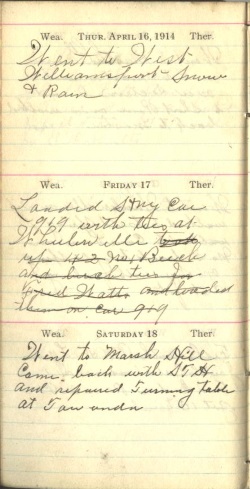 Wea. THUR. APRIL 16, 1914 Ther.
Went to West
Williamsport Snow
& Rain
Wea. FRIDAY 17 Ther.
Landed S+NY Car
969 with ties at
Wheelerville took
up 42 No. Beech
and birch ties for
Fred Watts and loaded
them on car 969
Wea. SATURDAY 18 Ther.
Went to Marsh Hill
Came back with ST H
and repaired Turning table
at Towanda